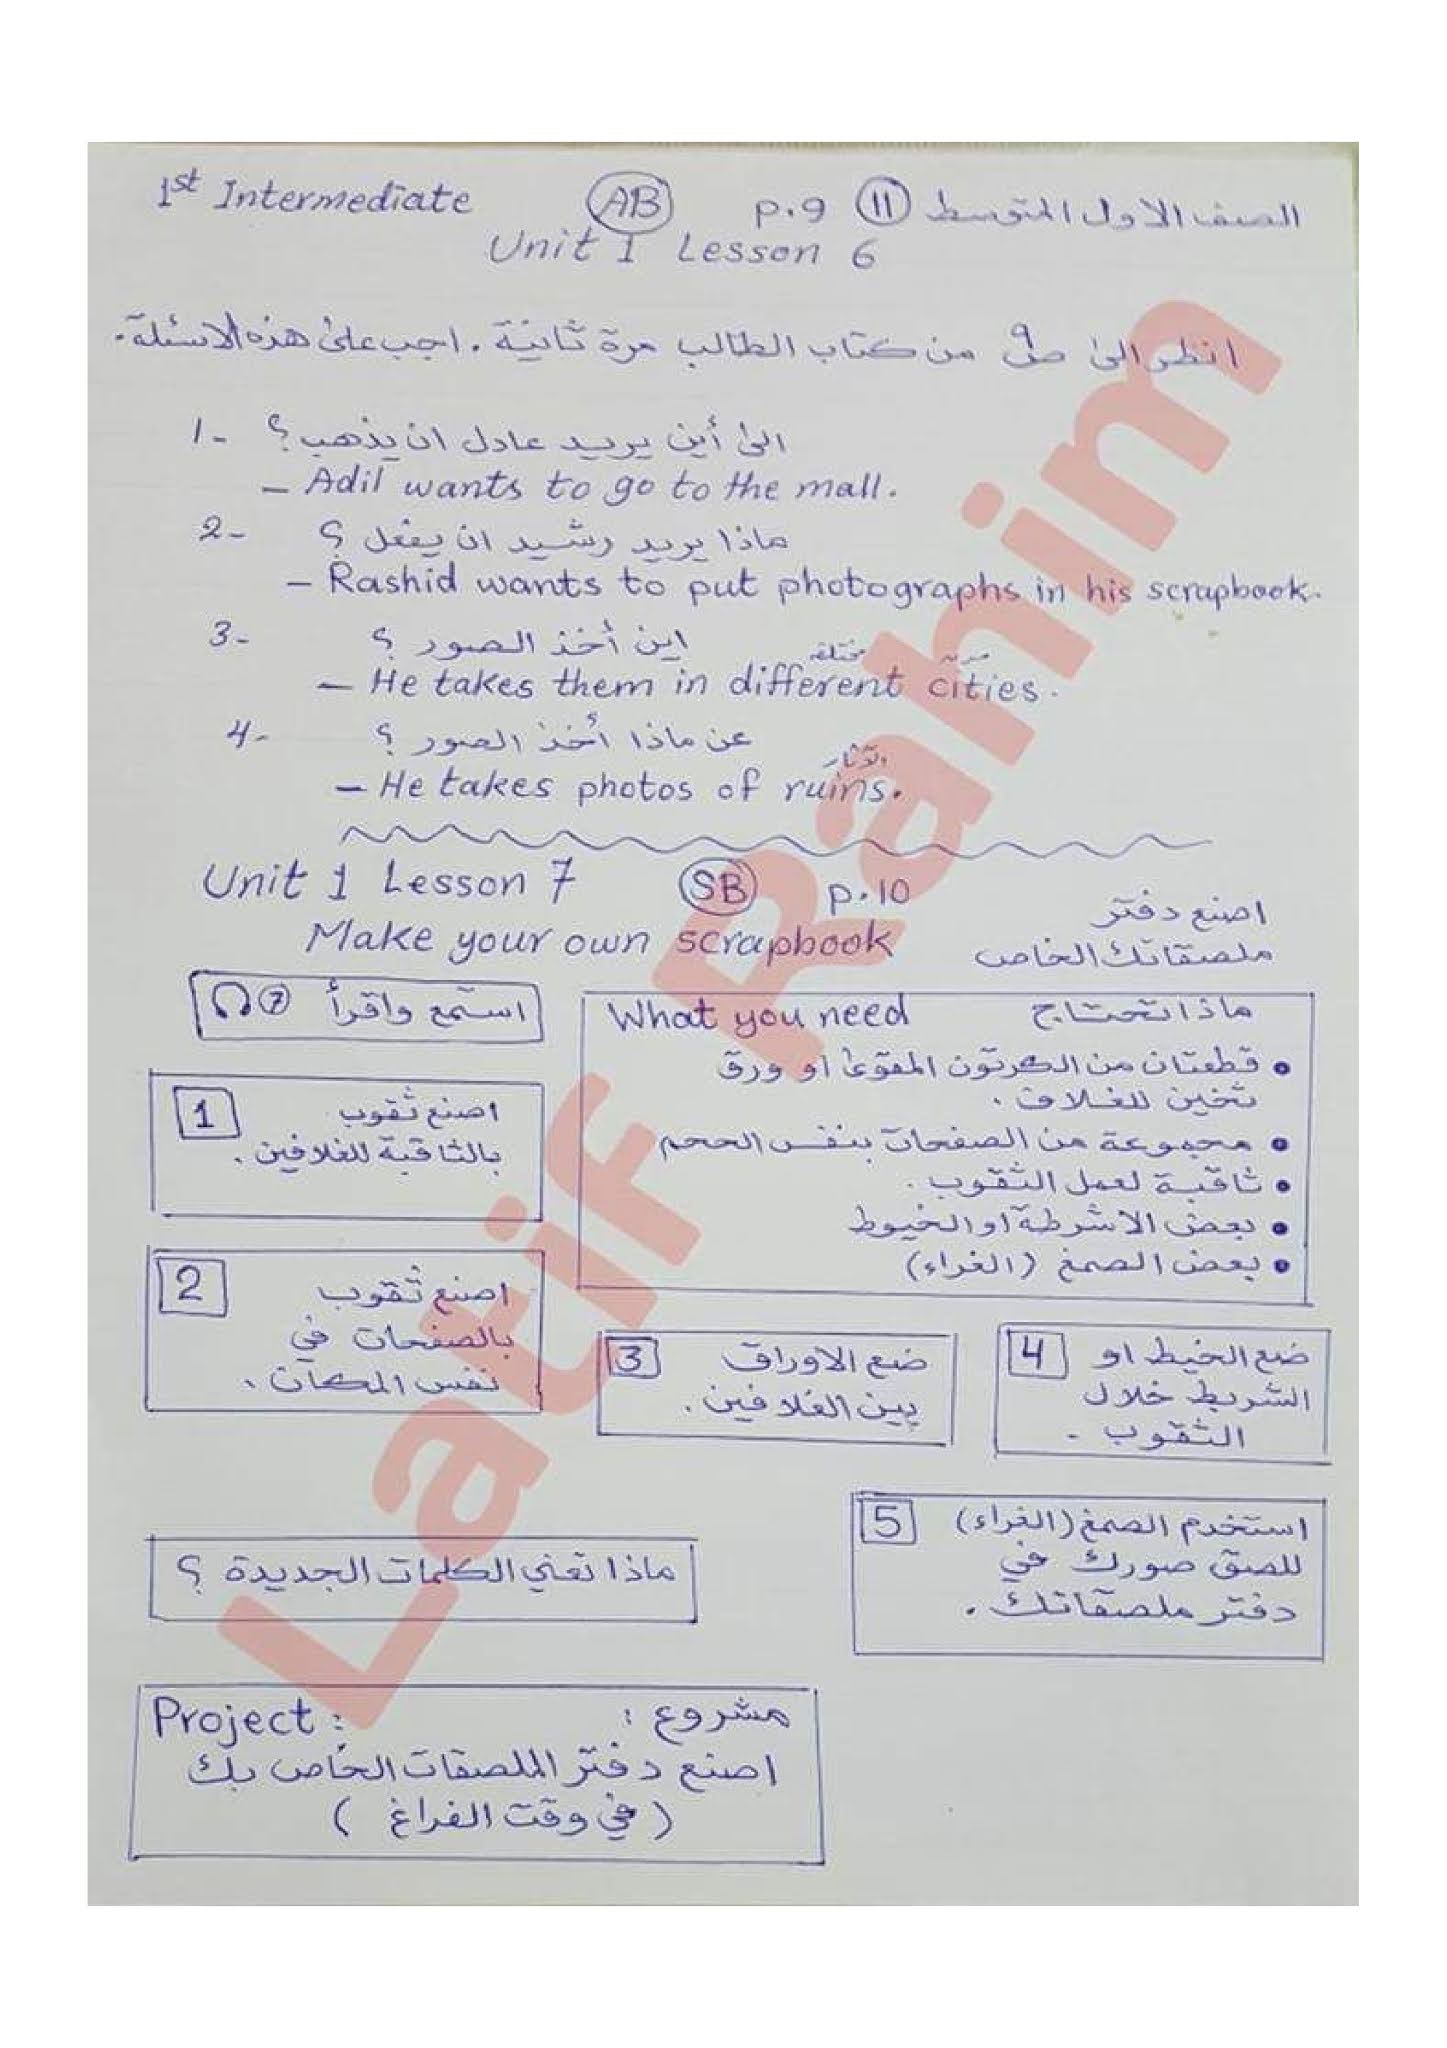 1st Intermediate AB p.9 11 الصف الاول المتوسط
Unit 1 Lesson 6
انظر الى ص9 من كتاب الطالب مرة ثانية . اجب على هذه الاسئلة .
1- الى أين يريد عادل ان يذهب ؟
– Adil wants to go to the mall.
2- ماذا يريد رشيد ان يفعل ؟
– Rashid wants to put photographs in his scrapbook.
3- اين أخذ الصور ؟
مختلفة
– He takes them in different cities.
4- عن ماذا أخذ الصور ؟
– He takes photos of ruins.
Unit 1 Lesson 7 SB p.10
Make your own scrapbook
اصنع دفتر
ملصقاتك الخاص
استمع واقرأ 7
What you need ماذا تحتاج
• قطعتان من الكرتون المقوى او ورق
ثخين للغلاف .
• مجموعة من الصفحات بنفس الحجم
• ثاقبة لعمل الثقوب .
• بعض الاشرطة او الخيوط
• بعض الصمغ (الغراء)
1 اصنع ثقوب
بالثاقبة للغلافين .
2 اصنع ثقوب
بالصفحات في
نفس المكان .
3 ضع الاوراق
بين الغلافين .
4 ضع الخيط او
الشريط خلال
الثقوب .
5 استخدم الصمغ (الغراء)
للصق صورك في
دفتر ملصقاتك .
ماذا تعني الكلمات الجديدة ؟
Project : مشروع :
اصنع دفتر الملصقات الخاص بك
( في وقت الفراغ )
Latif Rahim